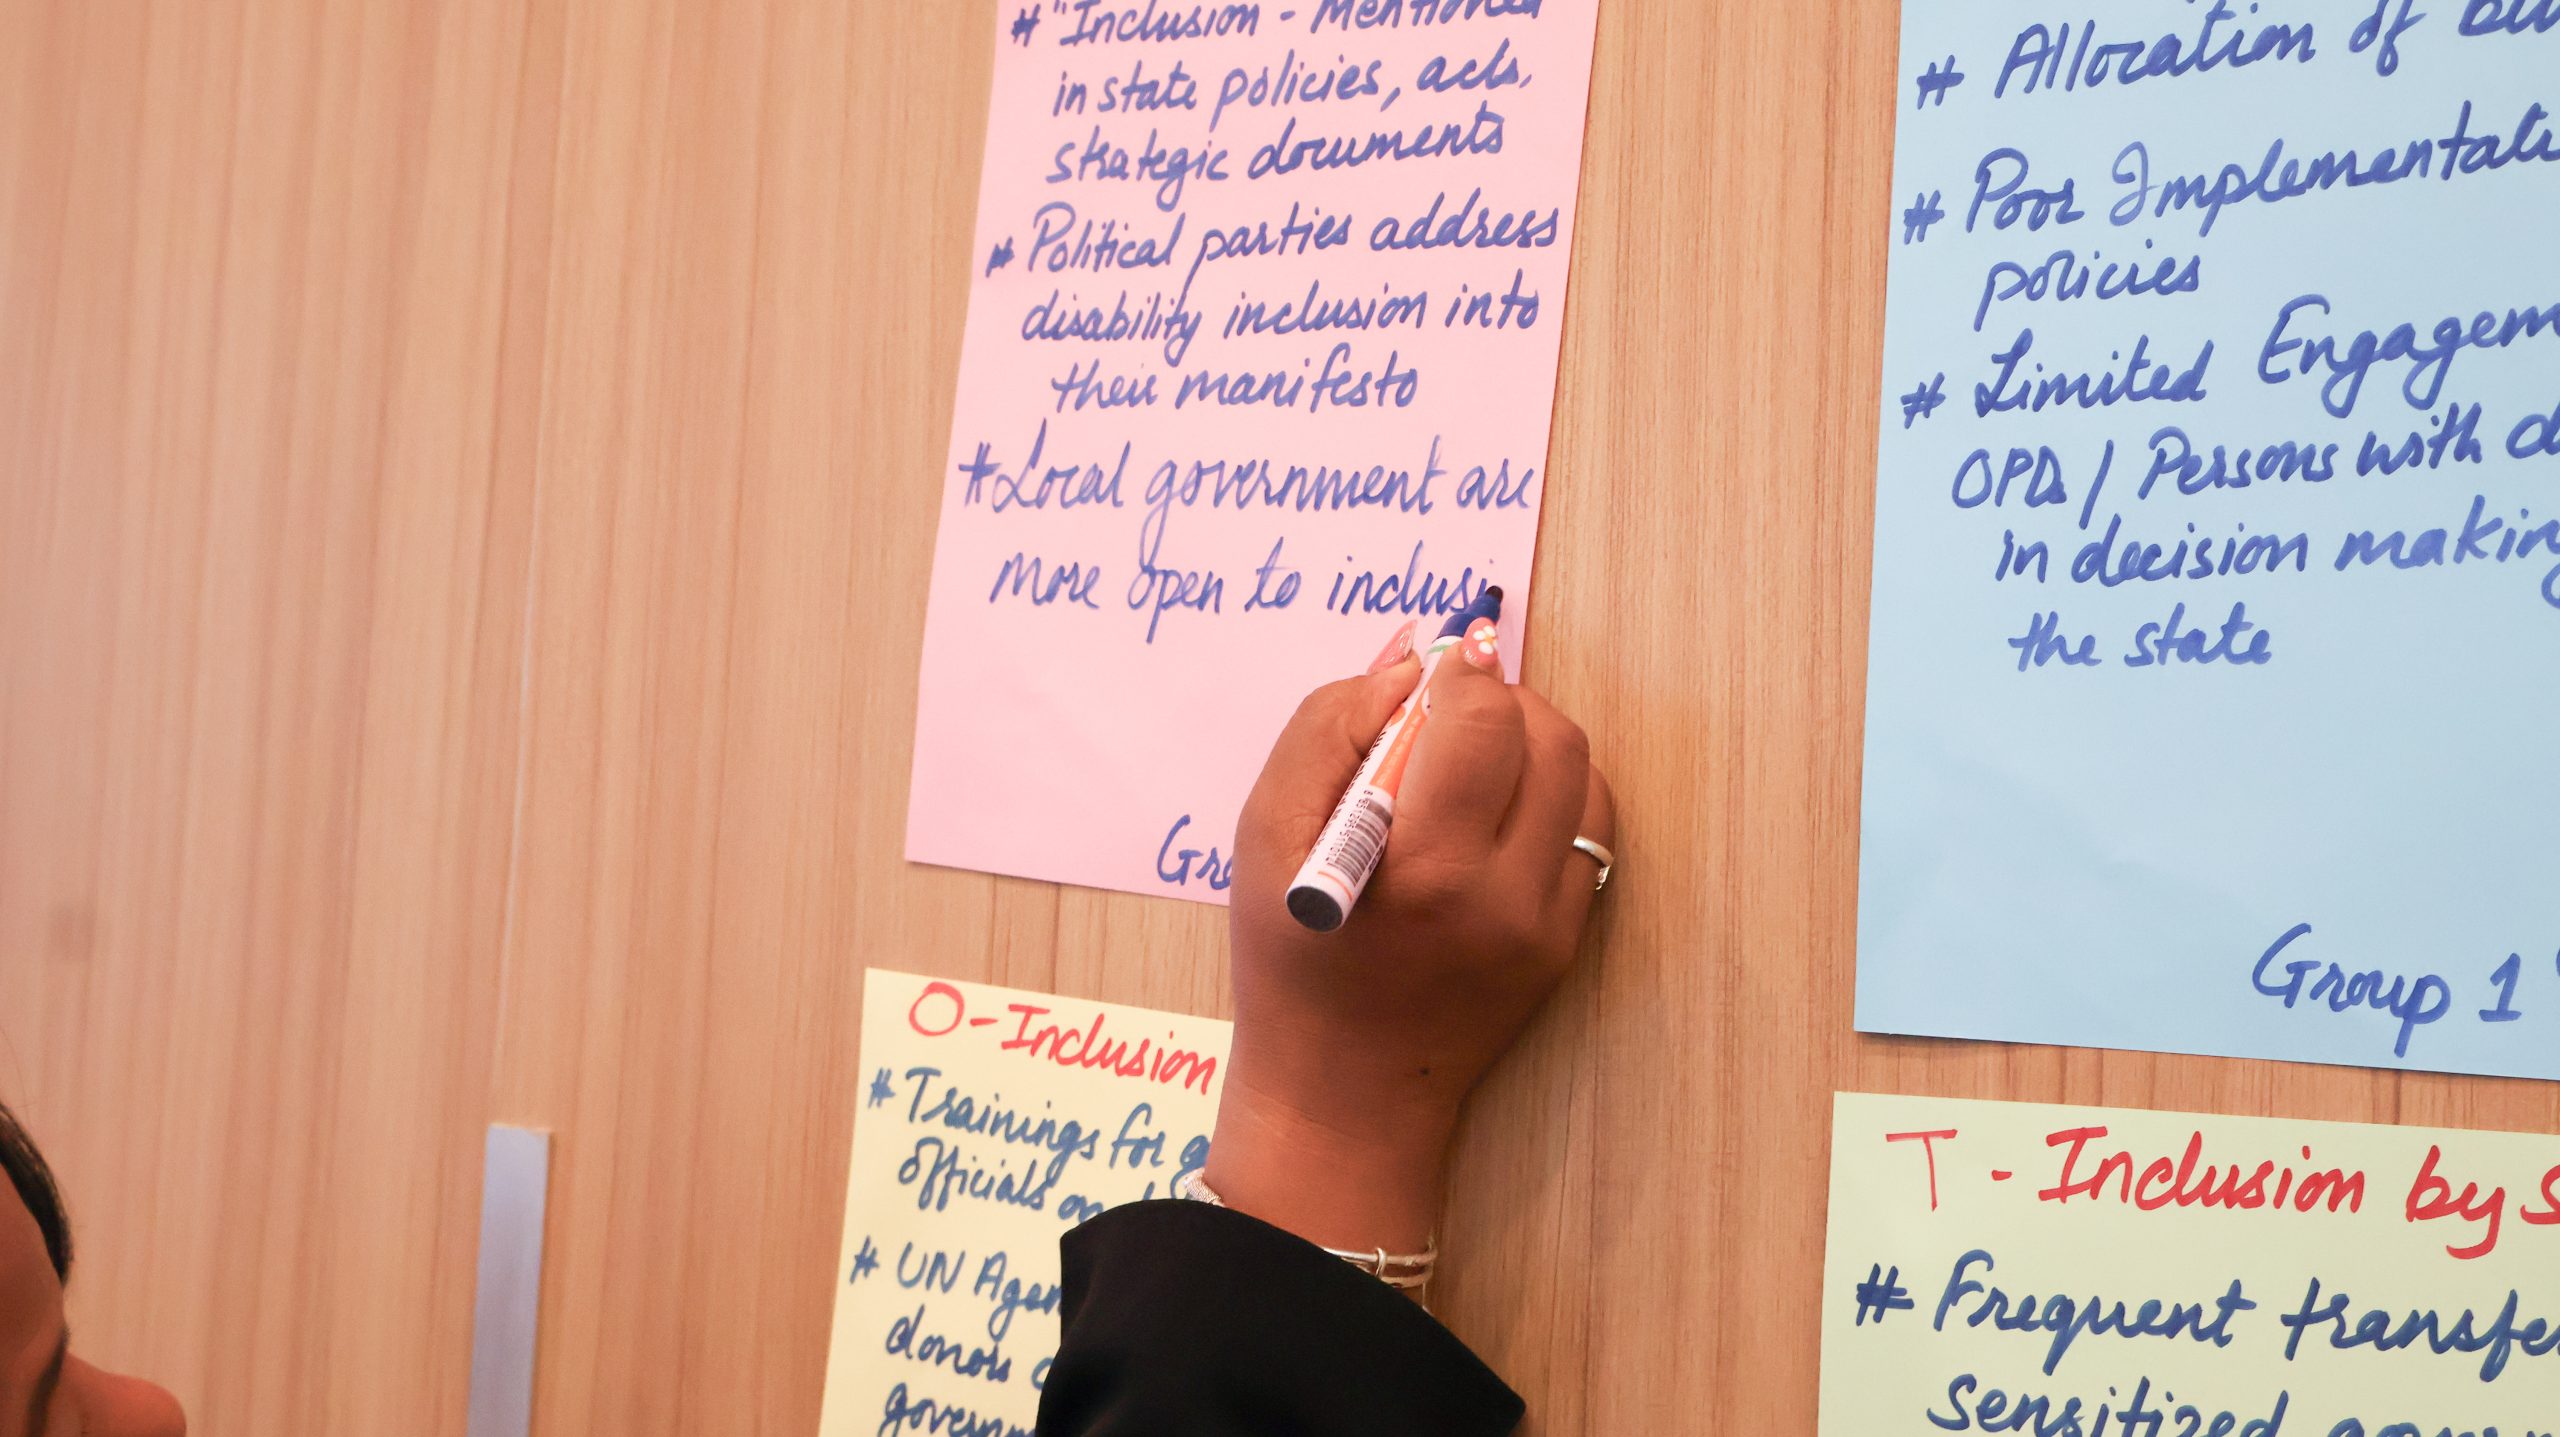 # "Inclusion - Mentioned
in state policies, acts,
strategic documents
# Political parties address
disability inclusion into
their manifesto
# Local government are
more open to inclusi
# Allocation of
# Poor Implementati
policies
# Limited Engagem
OPDs / Persons with d
in decision making
the state
Group 1
O - Inclusion
# Trainings for g
officials on
# UN Agen
donors
governm
T - Inclusion by S
# Frequent transfe
sensitized govern